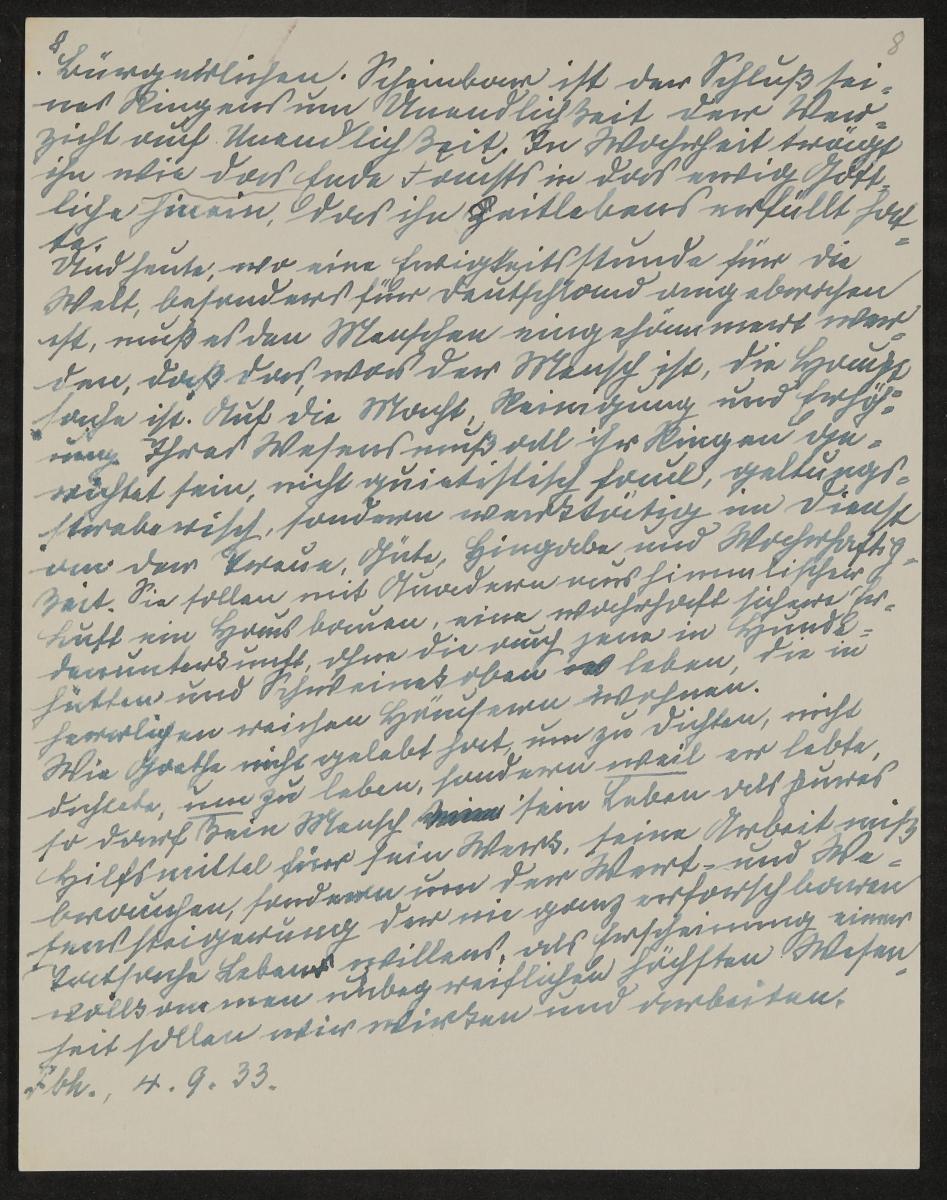 8 8
Bürgerlichen. Scheinbar ist der Schluß sei-
nes Ringens um Unendlichkeit der Ver-
zicht auf Unendlichkeit. In Wahrheit trägt
ihn wie das Ende Fausts in das ewig Gött-
liche hinein, das ihn zeitlebens erfüllt hat-
te.
Und heute, wo eine Ewigkeitsstunde für die
Welt, besonders für Deutschland angebrochen
ist, muß es den Menschen eingehämmert wer-
den, daß das, was der Mensch ist, die Haupt
sache ist. Auf die Macht, Reinigung und Erhöh-
ung Ihres Wesens muß all ihr Ringen ge-
richtet sein, nicht quietistisch faul, geltungs-
streberisch, sondern werktätig im Dienst
an der Treue, Güte, Hingabe und Wahrhaftig-
keit. Sie sollen mit Quadern aus himmlischer
Luft ein Haus bauen, eine wahrhaft sichere Er-
denunterkunft, ohne die auch jene in Hunds-
hütten und Schweinekoben leben, die in
herrlichen reichen Häusern wohnen.
Wie Goethe nicht gelebt hat, um zu dichten, nicht
dichtete, um zu leben, sondern weil er lebte,
so darf kein Mensch sein Leben als pures
Hilfsmittel für sein Werk, seine Arbeit miß
brauchen, sondern um der Wert- und We-
senssteigerung der nie ganz erforschbaren
Tatsache Lebens willens, als Erscheinung einer
vollkommen unbegreiflichen höchsten Wesen-
heit sollen wir wirken und arbeiten.
Fbh., 4. 9. 33.